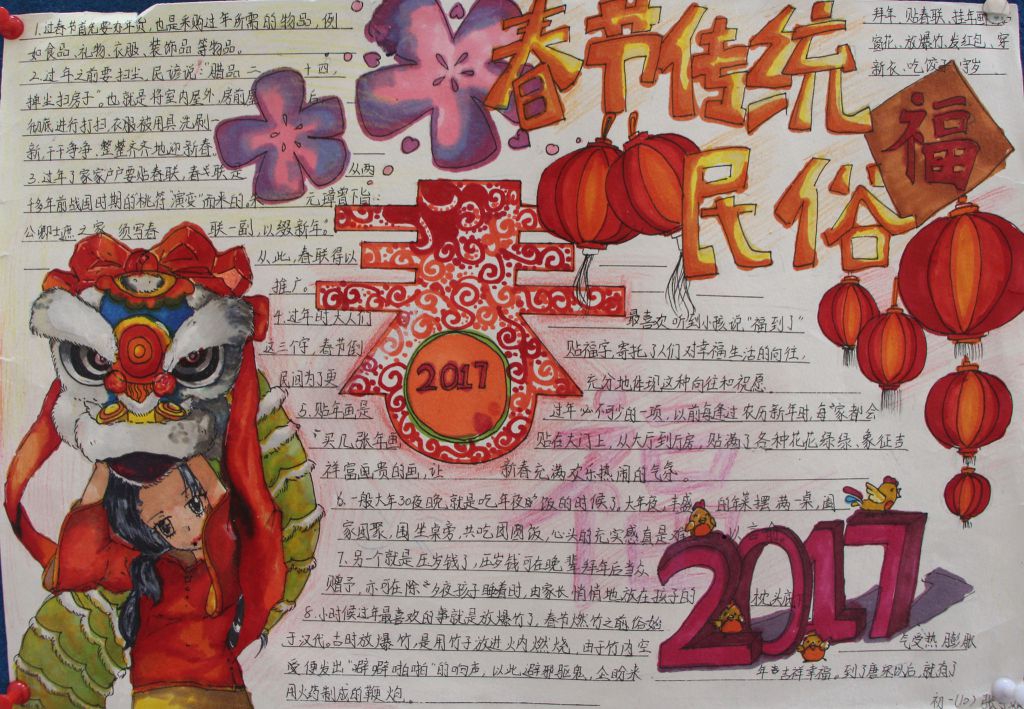 春节传统
民俗
福
春
2017
2017
1.过春节首先要办年货,也是采购过年所需的物品,例
如食品、礼物、衣服、装饰品等物品。
2.过年之前要扫尘,民谚说:腊品二 十四,
掸尘扫房子"。也就是将室内屋外,房前屋 后
彻底进行打扫,衣服被用具洗刷一
新,干干净净,整整齐齐地迎新春。
3.过年了家家户户要贴春联,春联是 从两
千多年前战国时期的桃符演变而来的, 元璋曾下旨:
公卿士庶之家 须写春 联一副,以缀新年。"
从此,春联得以
推广。
4.过年时大人们 最喜欢听到小孩说"福到了"
这三个字,春节倒 贴福字,寄托了人们对幸福生活的向往,
民间为了更 充分地体现这种向往和祝愿
5.贴年画是 过年必不可少的一项,以前每逢过农历新年时,每家都会
买几张年画 贴在大门上,从大厅到厅房,贴满了各种花花绿绿、象征吉
祥富贵的画,让 新春充满欢乐热闹的气氛。
6.一般大年30夜晚,就是吃年夜饭的时候了,大年夜,丰盛 的年菜摆满一桌,阖
家团聚,围坐桌旁,共吃团圆饭,心头的充实感真是难 以
7.另一个就是压岁钱了,压岁钱可在晚辈拜年后当众
赠予,亦可在除夕夜孩子睡着时,由家长悄悄地放在孩子的 枕头底
8.小时候过年最喜欢的事就是放爆竹了,春节燃竹之前俗始
于汉代。古时放爆竹,是用竹子放进火内燃烧,由于竹内空 气受热膨胀
受便发出"噼噼啪啪"的响声,以此避邪驱鬼,企盼来 年吉祥幸福。到了唐宋以后,就有了
用火药制成的鞭炮。
拜年、贴春联、挂年
窗花、放爆竹、发红包、穿
新衣、吃饺子、守岁
初一(10) 张